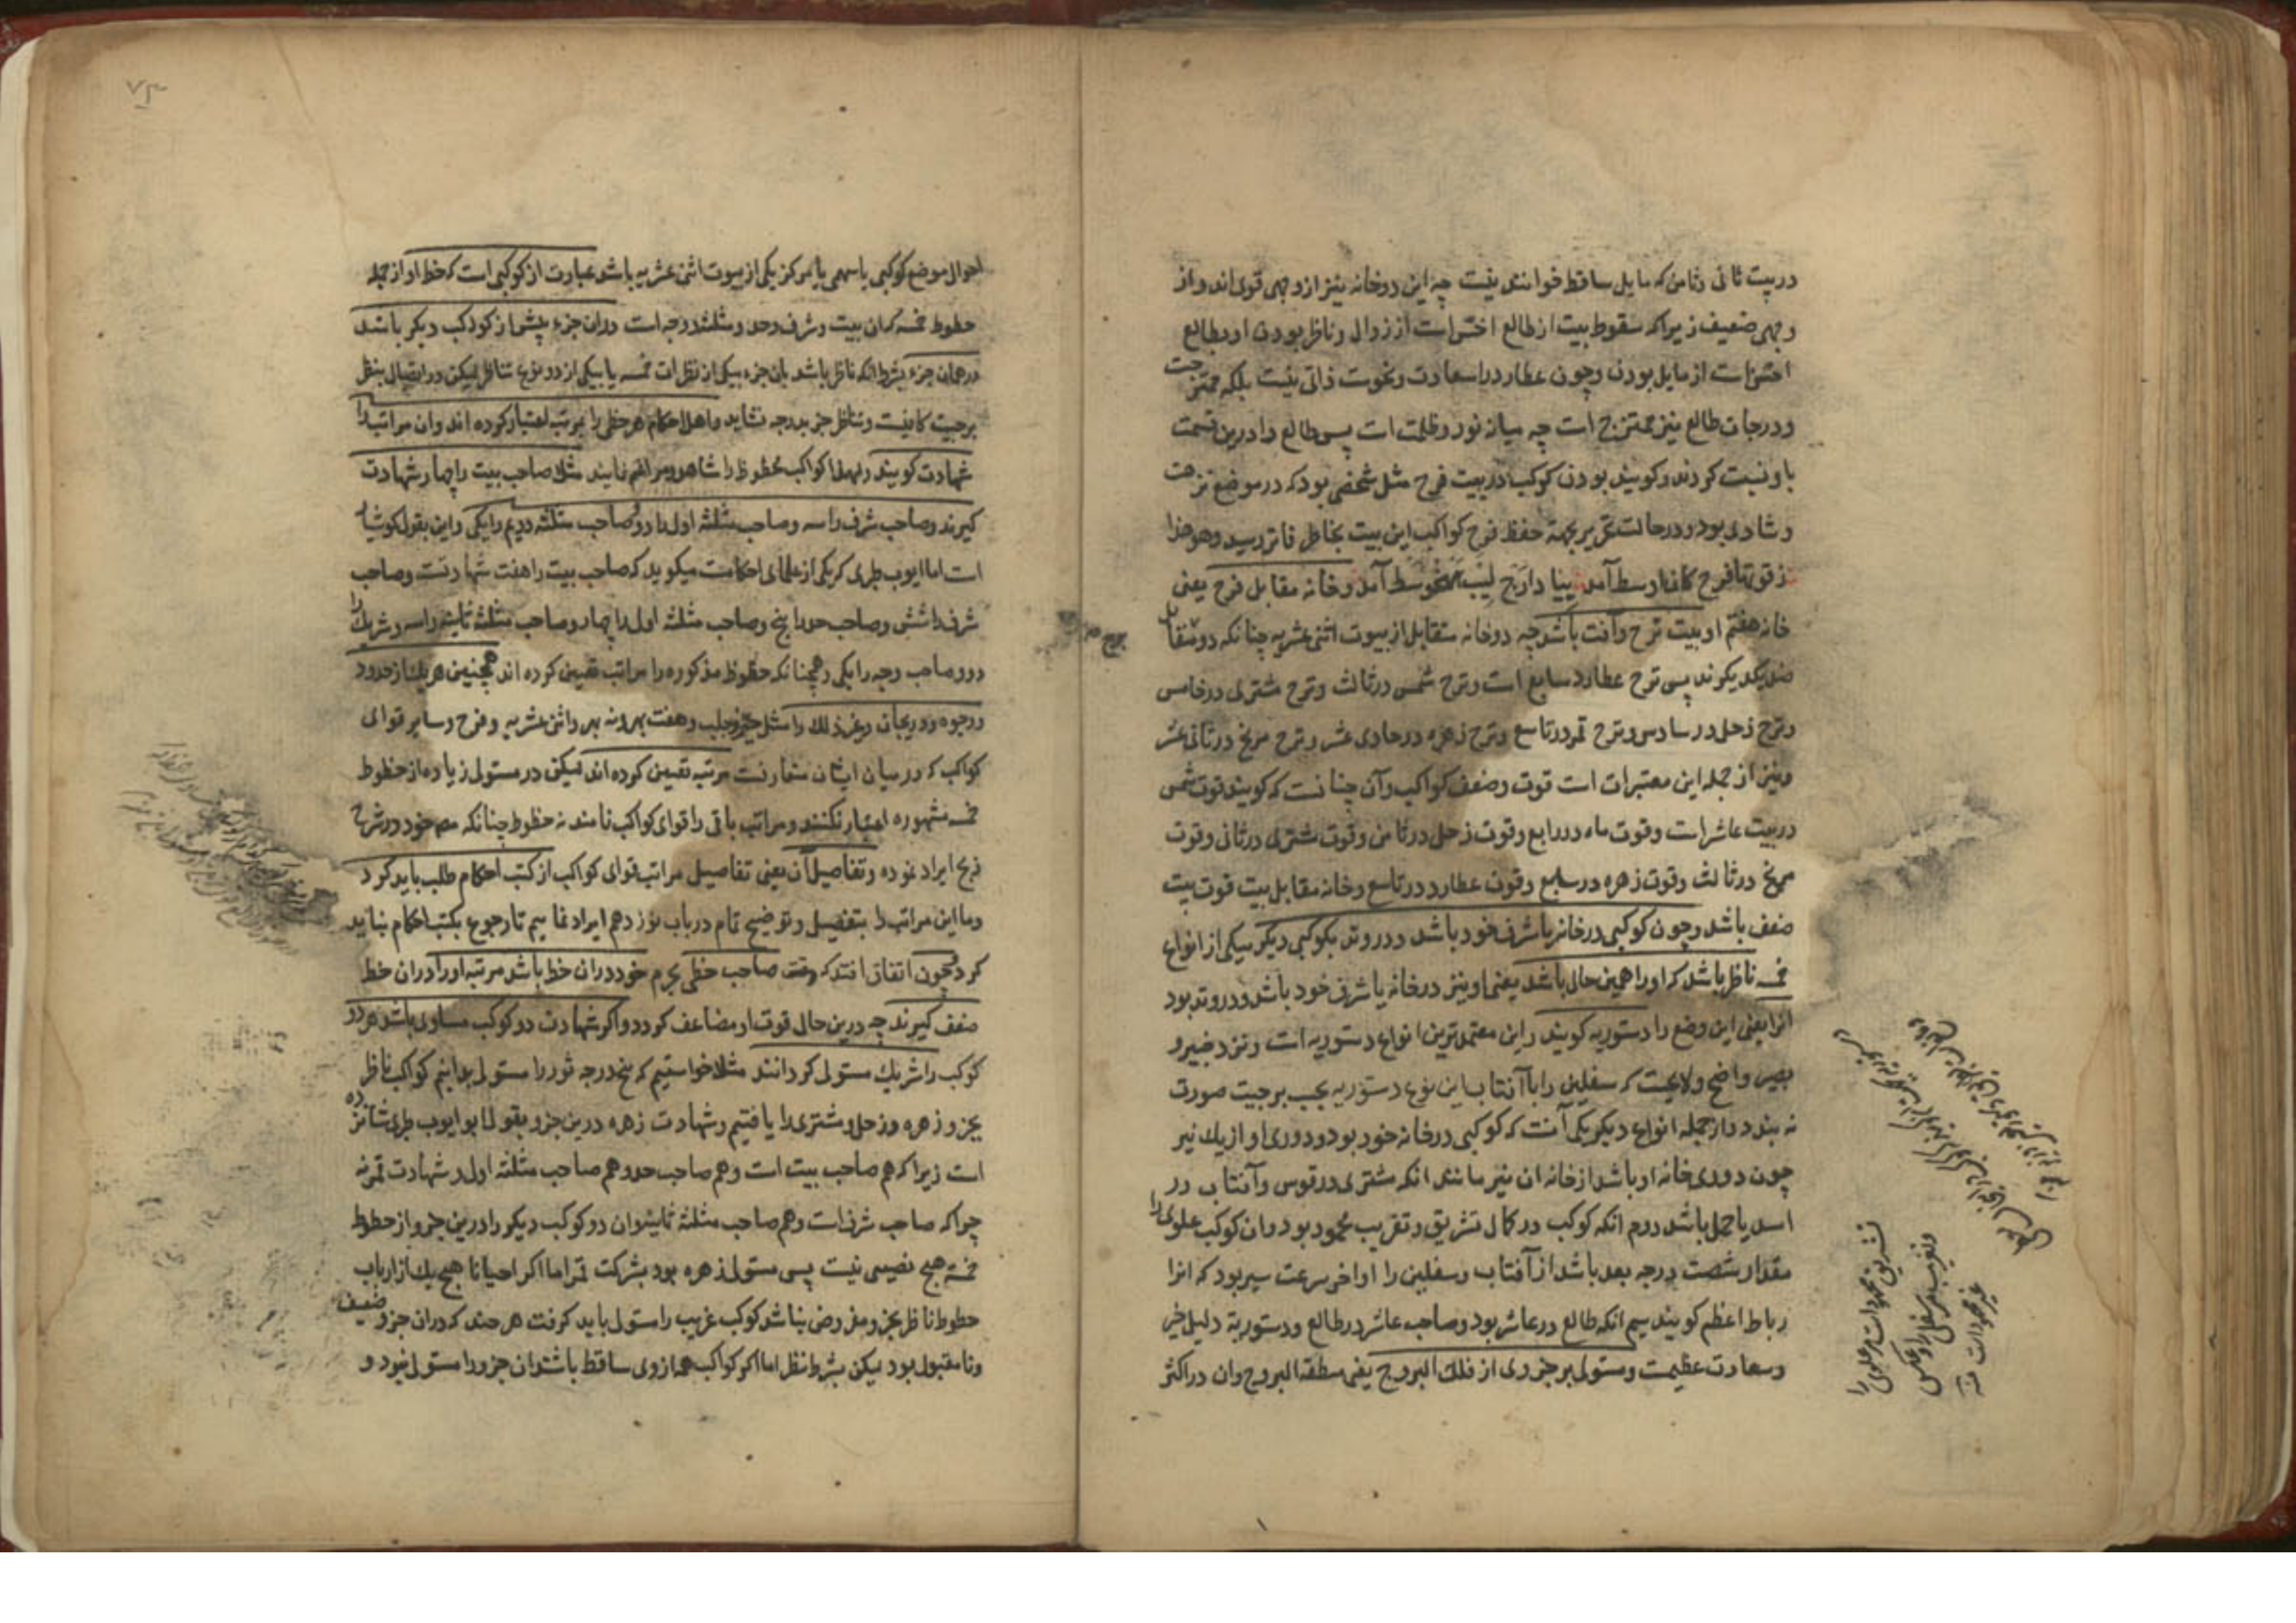 در بیت ثانی و ثامن که مایل ساقط خوانند نیست چه این دو خانه نیز از وجهی قوی‌اند و از
وجهی ضعیف زیرا که سقوط بیت از طالع اخترا است از زوال و ناظر بودن او بطالع
است از مایل بودن و چون عطارد را سعادت و نحوست ذاتی نیست بلکه ممتزجست
و درجات طالع نیز ممتزج است چه میان نور و ظلمت است پس طالع را درین قسمت
باو نسبت کردند و کویند بودن کوکب در بیت فرح مثل شخصی بود که در موضع نزهت
و شادی بود و در حالت تحریر بجهة حفظ فرح کواکب این بیت بخاطر فاتر رسید و هو هذا
آمد و خانه مقابل فرح یعنی
خانه هفتم او بیت ترح و آفت باشد چه دو خانه متقابل از بیوت اثنی عشریه چنانکه دو متقابل
ضد یکدیکرند پس ترح عطارد سابع است و ترح شمس در ثالث و ترح مشتری در خامس
و ترح زحل در سادس و ترح قمر در تاسع و ترح زهره در حادی عشر و ترح مریخ در ثانی عشر
و نیز از جمله این معتبرات است قوت و ضعف کواکب و آن چنانست که کویند قوت شمس
در بیت عاشر است و قوت ماه در رابع و قوت زحل در ثامن و قوت مشتری در ثانی و قوت
مریخ در ثالث و قوت زهره در سابع و قوت عطارد در تاسع و خانه مقابل بیت قوت بیت
ضعف باشد و چون کوکبی در خانه یا شرف خود باشد و در وتد بکوکبی دیکر بیکی از انواع
خمسه ناظر باشد که او را همین حال باشد یعنی او نیز در خانه یا شرف خود باشد و در وتد بود
انرا یعنی این وضع را دستوریه کویند و این معتمدترین انواع دستوریه است و نزد خبیر و
بصیر واضح و لایحست که سفلیین را با آفتاب این نوع دستوریه بحسب برجیت صورت
نه بندد و از جمله انواع دیکر یکی آنست که کوکبی در خانه خود بود و دوری او از یک نیر
چون دوری خانه او باشد از خانه ان نیر مانند انکه مشتری در قوس و آفتاب در
اسد یا حمل باشد دوم انکه کوکب در کمال تشریق و تغریب محمود بود و ان کوکب علوی را
مقدار شصت درجه بعد باشد از آفتاب و سفلیین را اواخر سرعت سیر بود که انرا
رباط اعظم کویند سیم انکه طالع در عاشر بود و صاحب عاشر در طالع و دستوریه دلیل خیر
و سعادت عظیمست و مستولی بر جزوی از فلک البروج یعنی منطقة البروج و ان در اکثر
تشریق محمود است مر علوی را
و تغریب مر سفلی را و عکس
غیر محمود است منه
۷۳
احوال موضع کوکبی یا سهمی یا مرکز یکی از بیوت اثنی عشریه باشد عبارت از کوکبی است که حظ او از جمله
حظوظ خمسه که ان بیت و شرف و حد و مثلثه و وجه است در ان جزء بیش از کوکب دیکر باشد
در همان جزء بشرط انکه ناظر باشد بان جزء بیکی از نظرات خمسه یا بیکی از دو نوع تناظر لیکن در اتصال بنظر
برجیت کافیست و تناظر جز بدرجه نشاید و اهل احکام هر حظی را مرتبه اعتبار کرده اند و ان مراتب را
شهادت کویند و لهذا کواکب محظوظ را شاهد و مزاعم نامند مثلا صاحب بیت را چهار شهادت
کیرند و صاحب شرف را سه و صاحب مثلثه اول را دو و صاحب مثلثه دویم را یکی و این بقول کوشیار
است اما ایوب طبری که یکی از علمای احکامست میکوید که صاحب بیت را هفت شهادتست و صاحب
شرف را شش و صاحب حد را پنج و صاحب مثلثه اول را چهار و صاحب مثلثه ثانیه را سه و شریک را
دو و صاحب وجه را یکی و همچنانکه حظوظ مذکوره را مراتب تعیین کرده اند همچنین هر یک از حدود
و وجوه و دریجان و غیر ذلک را مثل حیز و حلب و هفت بهر و نه بهر و اثنی عشریه و فرح و سایر قوای
کواکب که در میان ایشان متعارفست مرتبه تعیین کرده اند لیکن در مستولی زیاده از حظوظ
خمسه مشهوره اعتبار نکنند و مراتب باقی را قوای کواکب نامند نه حظوظ چنانکه مصـ خود در شرح
زیج ایراد نموده و تفاصیل آن یعنی تفاصیل مراتب قوای کواکب از کتب احکام طلب باید کرد
و ما این مراتب را بتفصیل و توضیح تمام در باب نوزدهم ایراد نماییم تا رجوع بکتب احکام نباید
کرد و چون اتفاق افتد که وقت صاحب حظی بجرم خود در ان حظ باشد مرتبه او را در ان حظ
ضعف کیرند چه درین حال قوت او مضاعف کردد و اکر شهادت دو کوکب مساوی باشد هر دو
کوکب را شریک مستولی کردانند مثلا خواستیم که پنج درجه ثور را مستولی بدانیم کواکب ناظر
بجزو زهره و زحل و مشتری را یافتیم و شهادت زهره درین جزو بقول ابو ایوب طبری شانزده
است زیرا که هم صاحب بیت است و هم صاحب حد و هم صاحب مثلثه اول و شهادت قمر نه
چرا که صاحب شرف است و هم صاحب مثلثه ثانیه و ان دو کوکب دیکر را درین جزو از حظوظ
خمسه هیچ نصیبی نیست پس مستولی زهره بود بشرکت قمر اما اکر احیانا هیچ یک از ارباب
حظوظ ناظر بجزو مفروض نباشد کوکب غریب را مستولی باید کرفت هر چند که در ان جزو ضعیف
و نامقبول بود لیکن بشرط نظر اما اکر کواکب همه از وی ساقط باشند ان جزو را مستولی نبود و